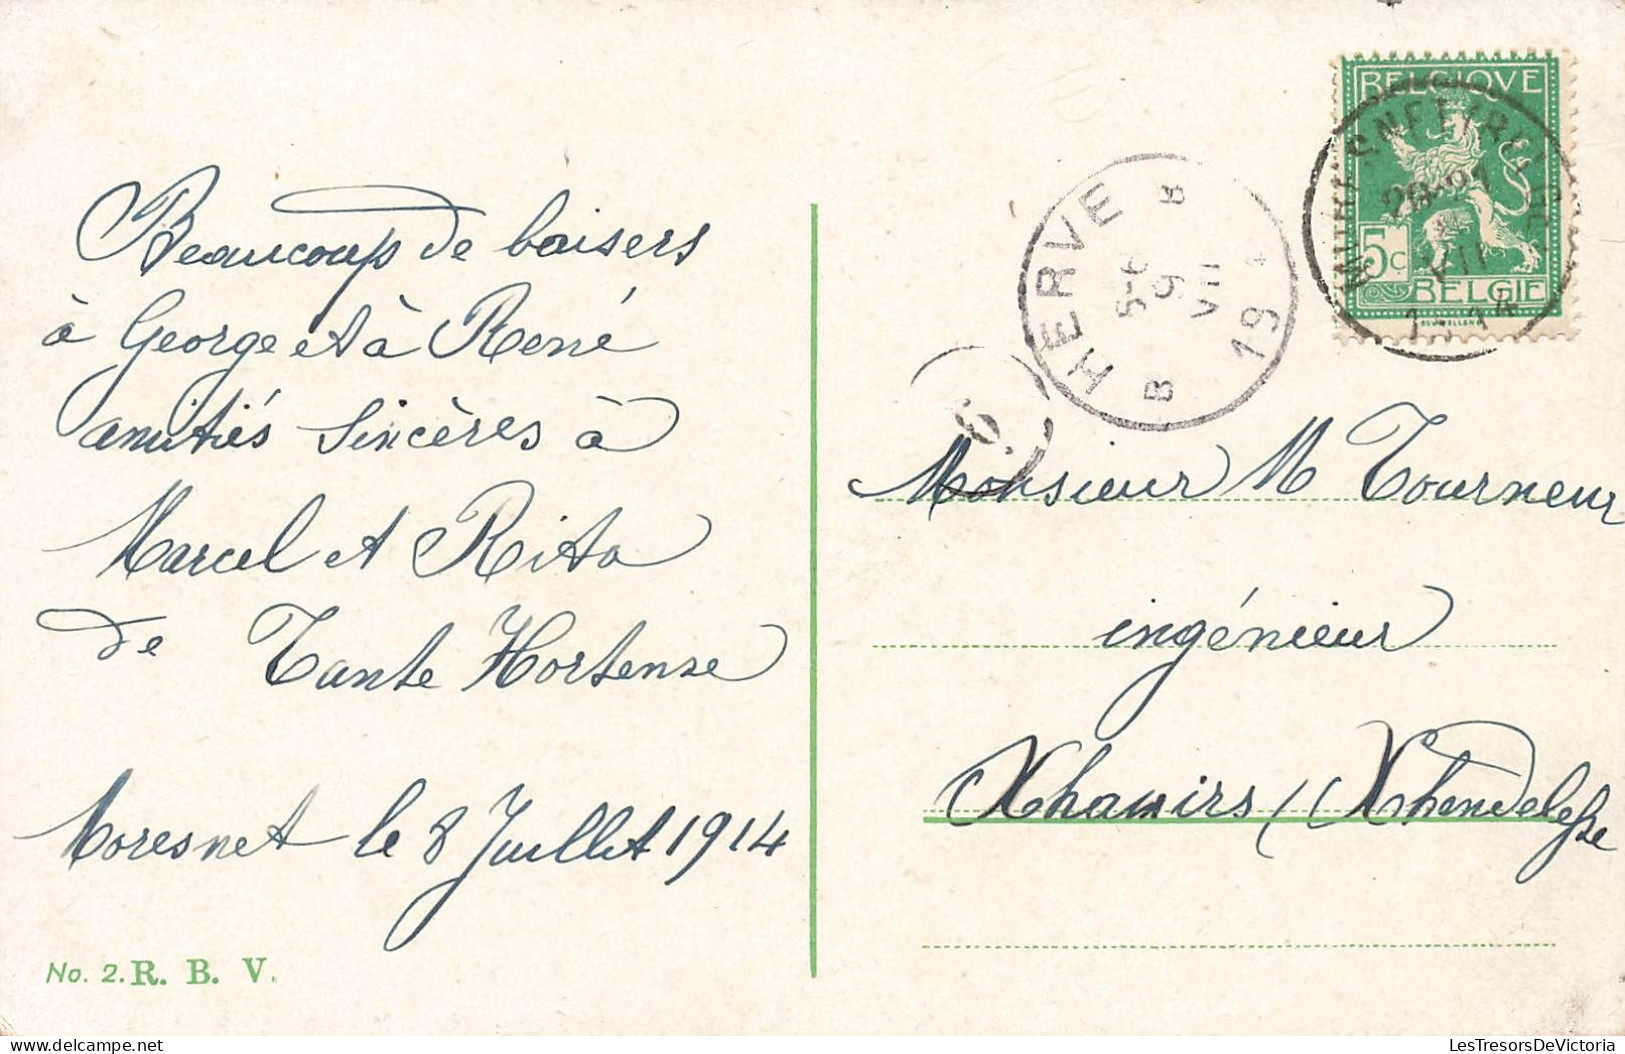 Beaucoup de baisers
à George et à René
amitiés sincères à
Marcel et Rita
de Tante Hortense
Moresnet le 8 Juillet 1914
No. 2. R. B. V.
BELGIQUE
5c
BELGIE
HERVE
B B
9
VII
19
6
Monsieur M Tourneur
ingénieur
Xhawirs (Xhendelesse
LesTresorsDeVictoria
delcampe.net